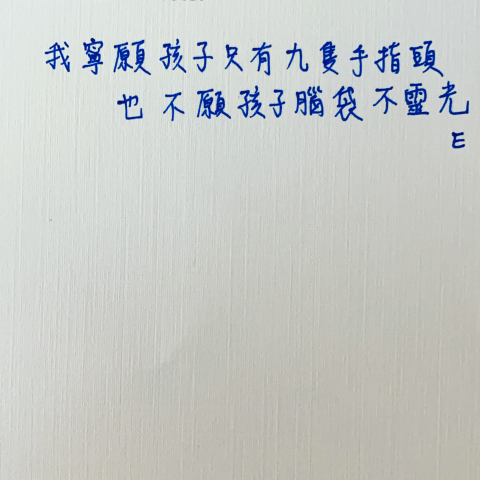 我寧願孩子只有九隻手指頭
也不願孩子腦袋不靈光
E